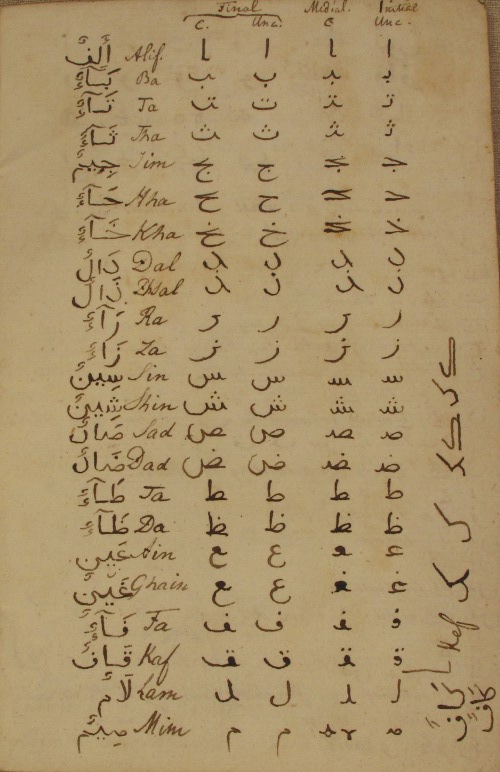 Final Medial. Initial
C. Unc. C Unc.
أَلِفٌ Alif. ـا ا ـا ا
بَآءٌ Ba ـب ب ـبـ بـ
تَآءٌ Ta ـت ت ـتـ تـ
ثَآءٌ Tha ـث ث ـثـ ثـ
جِيمٌ Jim ـج ج ـجـ جـ
حَآءٌ Hha ـح ح ـحـ حـ
خَآءٌ Kha ـخ خ ـخـ خـ
دَالٌ Dal ـد د ـد د
ذَالٌ Dhal ـذ ذ ـذ ذ
رَآءٌ Ra ـر ر ـر ر
زَاءٌ Za ـز ز ـز ز
سِينٌ Sin ـس س ـسـ سـ
شِينٌ Shin ـش ش ـشـ شـ
صَادٌ Sad ـص ص ـصـ صـ
ضَادٌ Dad ـض ض ـضـ ضـ
طَآءٌ Ta ـط ط ـطـ طـ
ظَآءٌ Da ـظ ظ ـظـ ظـ
عَين Ain ـع ع ـعـ عـ
غَينٌ Ghain ـغ غ ـغـ غـ
فَآءٌ Fa ـف ف ـفـ فـ
قَافٌ Kaf ـق ق ـقـ قـ
لَامٌ Lam ـل ل ـلـ لـ
مِيمٌ Mim ـم م ـمـ مـ
كَافٌ Kef